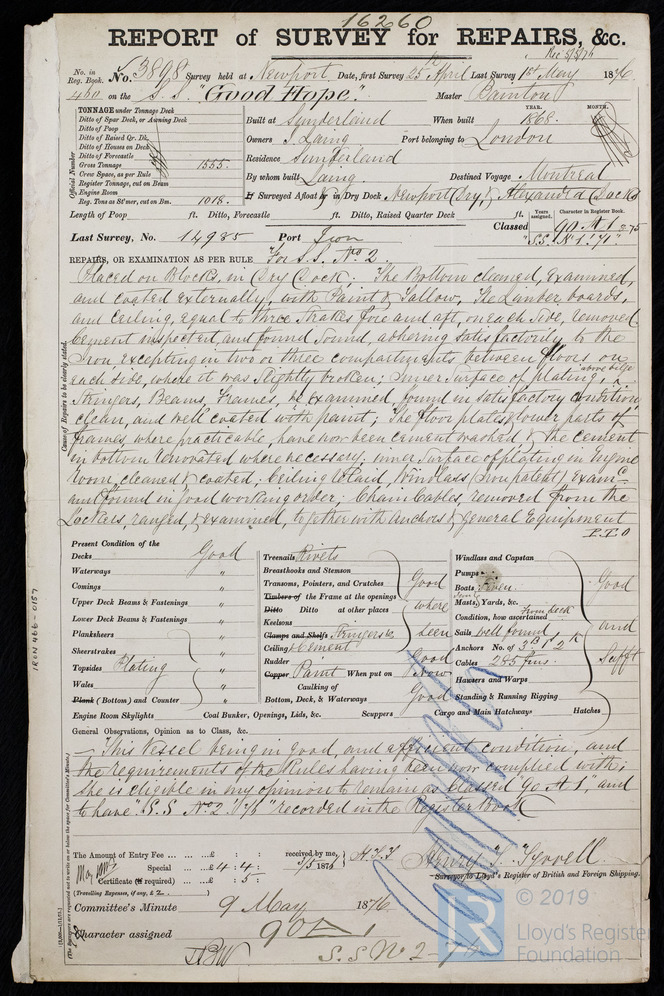 16260
REPORT of SURVEY for REPAIRS, &c.
Rec 5/5/76
No. in Reg. Book. No. 3898 Survey held at Newport, Date, first Survey 25th April Last Survey 1st May 1876
460 on the S.S. "Good Hope." Master Painton
TONNAGE under Tonnage Deck
Ditto of Spar Deck, or Awning Deck
Ditto of Poop
Ditto of Raised Qr. Dk.
Ditto of Houses on Deck
Ditto of Forecastle
Gross Tonnage 1555.
Crew Space, as per Rule
Register Tonnage, cut on Beam
Engine Room
Reg. Tons as St'mer, cut on Bm. 1018.
Official Number
Built at Sunderland When built YEAR. 1868. MONTH.
Owners J. Laing Port belonging to London
Residence Sunderland
By whom built Laing. Destined Voyage Montreal
If Surveyed Afloat or in Dry Dock Newport (Dry) & Alexandra (Docks)
Length of Poop ft. Ditto, Forecastle ft. Ditto, Raised Quarter Deck ft.
Years assigned. Character in Register Book.
Classed 90 A 1 2-75
"S.S. No 1. '71"
Last Survey, No. 14985 Port Iron
REPAIRS, OR EXAMINATION AS PER RULE "For S.S. No. 2.
Cause of Repairs to be clearly stated.
Placed on Blocks, in Dry Dock. The Bottom cleaned, Examined,
and coated externally, with Paint & Tallow, The Limber boards,
and Ceiling, equal to three Strakes fore and aft, on each Side, removed
Cement inspected, and found Sound, adhering satisfactorily to the
Iron excepting in two or three compartments between floors on
each side, where it was slightly broken; Inner Surface of plating, above bilge
Stringers, Beams, Frames, &c Examined, found in satisfactory condition
clean, and well coated with paint; The floor plates & lower parts of
frames, where practicable, have now been cement washed & the cement
in bottom renovated where necessary; inner surface of plating in Engine
room, cleaned & coated; Ceiling relaid, Windlass (Iron patent) Examd
and found in good working order; Chain Cables, removed from the
Lockers, ranged, & examined, together with Anchors & General Equipment
P.T.O
Present Condition of the
Decks Good
Waterways "
Comings "
Upper Deck Beams & Fastenings "
Lower Deck Beams & Fastenings "
Planksheers "
Sheerstrakes "
Topsides Plating "
Wales "
Plank (Bottom) and Counter "
Engine Room Skylights Coal Bunker, Openings, Lids, &c. Scuppers Cargo and Main Hatchways Hatches
Treenails Rivets
Breasthooks and Stemson
Transoms, Pointers, and Crutches Good
Timbers of the Frame at the openings
Ditto Ditto at other places where
Keelsons
Clamps and Shelfs Stringers &c seen
Ceiling Cement
Rudder Good
Copper Paint When put on Now
Caulking of
Bottom, Deck, & Waterways Good
Windlass and Capstan
Pumps
Boats Seven Good
Masts, Yards, &c.
Condition, how ascertained From deck
Sails well found and
Anchors No. of 3 B 1 S 2 K
Cables 285 fms. Sufft
Hawsers and Warps
Standing & Running Rigging
General Observations, Opinion as to Class, &c.
— This Vessel being in good, and efficient condition, and
the requirements of the Rules having been now complied with;
She is eligible in my opinion to remain as classed "90 A 1," and
to have "S.S No 2 '76" recorded in the Register Book
The Amount of Entry Fee ... ... £ : : received by me,
Special ... £4 : 4 : 1/5 1876 H.T.T
Certificate (if required) ... £ : 5 :
(Travelling Expenses, if any, £2. )
Henry T. Tyrrell
Surveyor to Lloyd's Register of British and Foreign Shipping.
Committee's Minute 9 May 1876
Character assigned 90 A 1
S.S No 2 - 76
IRON 466-0157
© 2019
LR
Lloyd's Register
Foundation